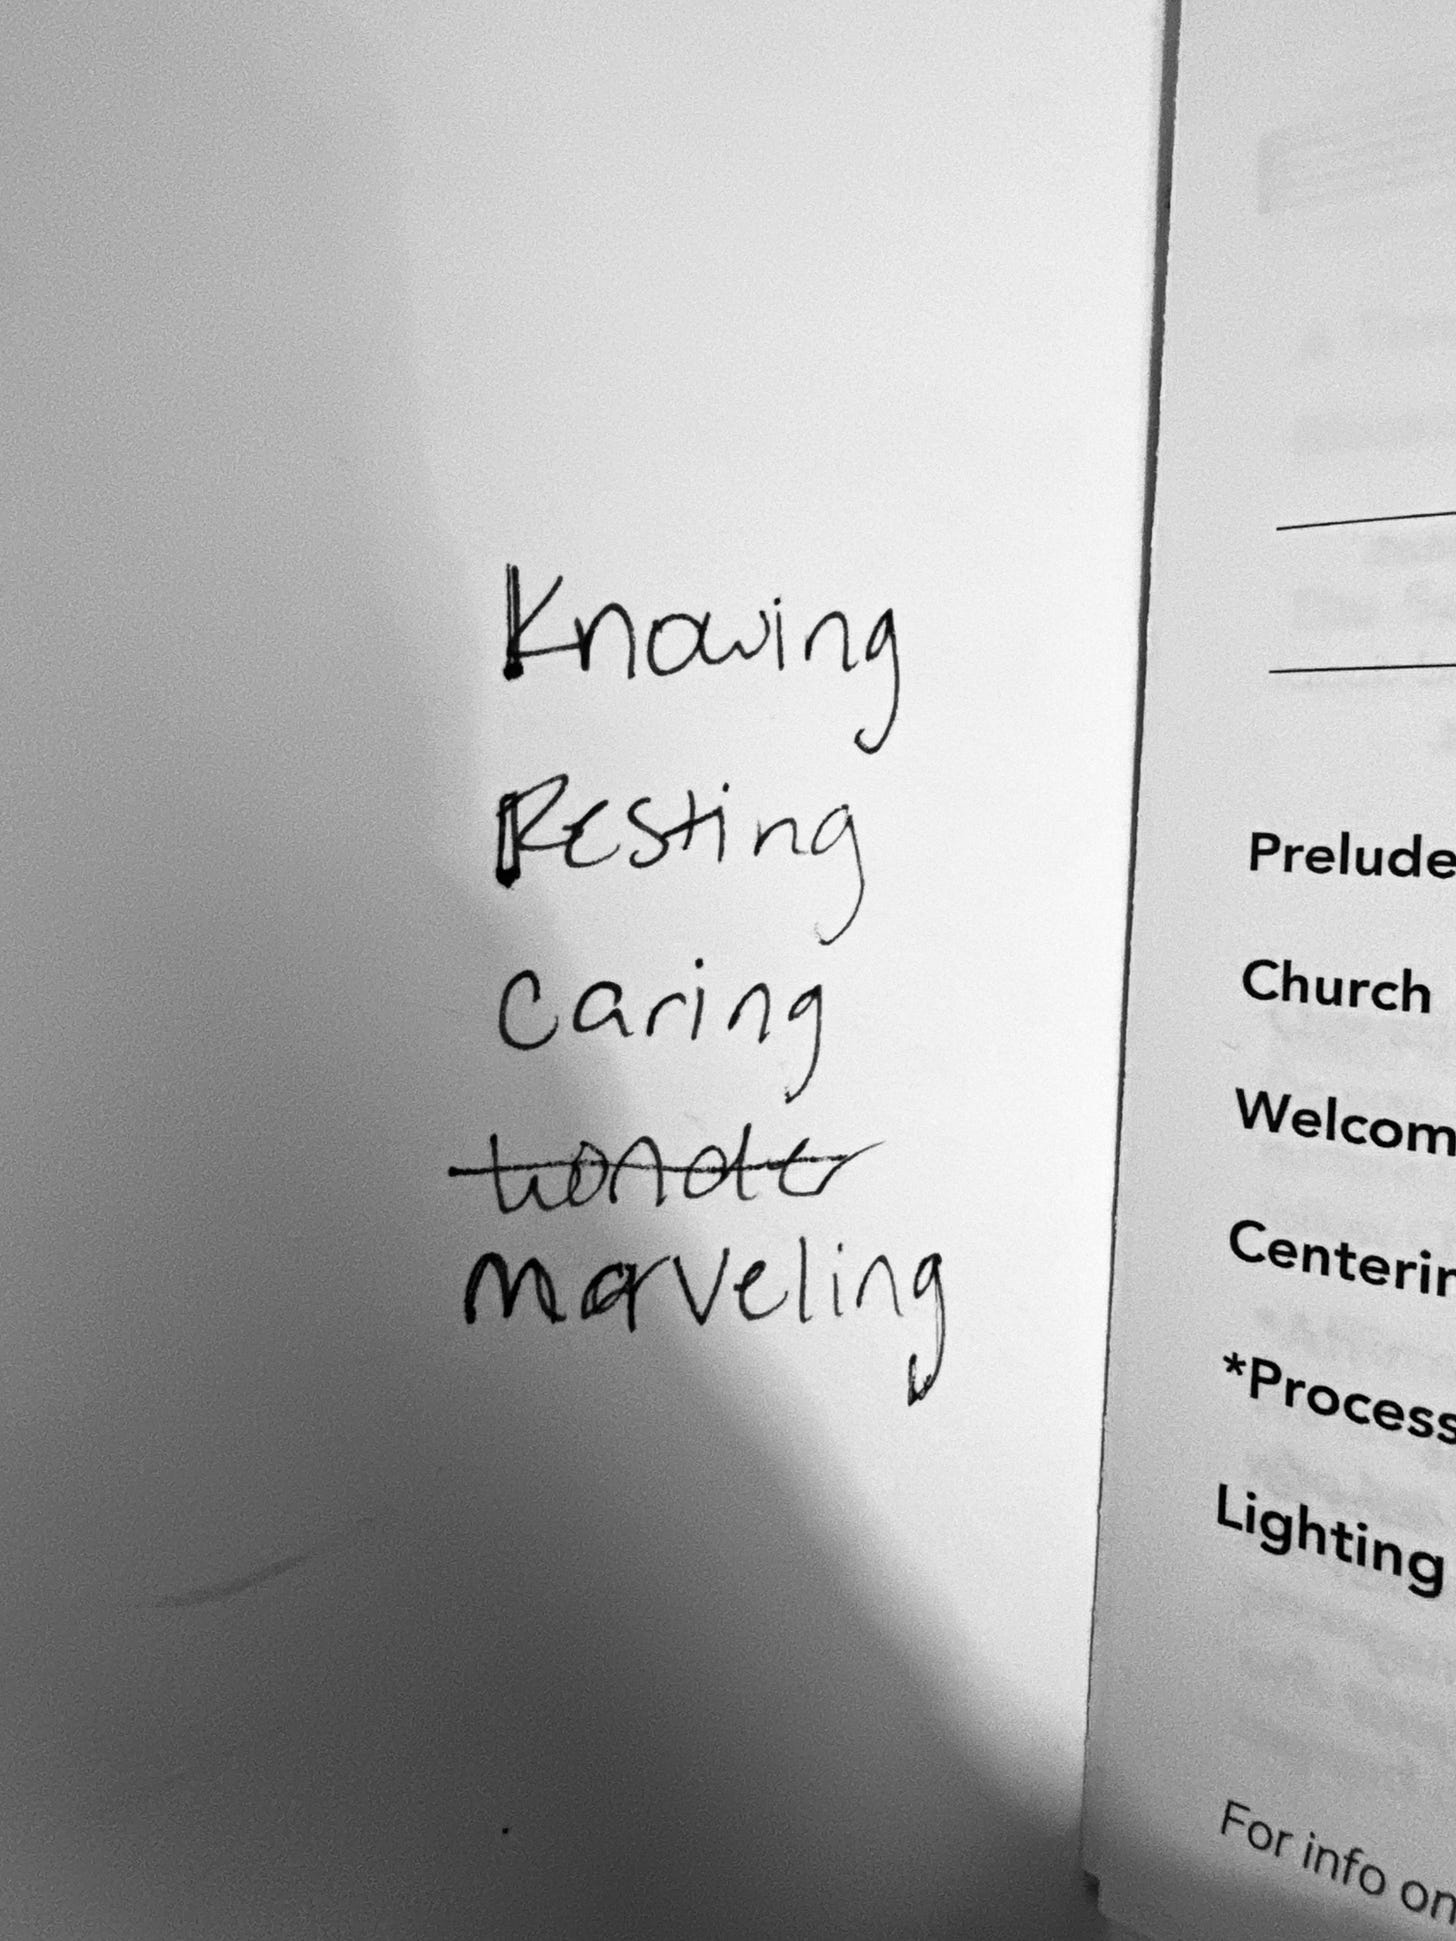 Knowing
Resting
Caring
wonder
Marveling
Prelude
Church
Welcom
Centerin
*Process
Lighting
For info on